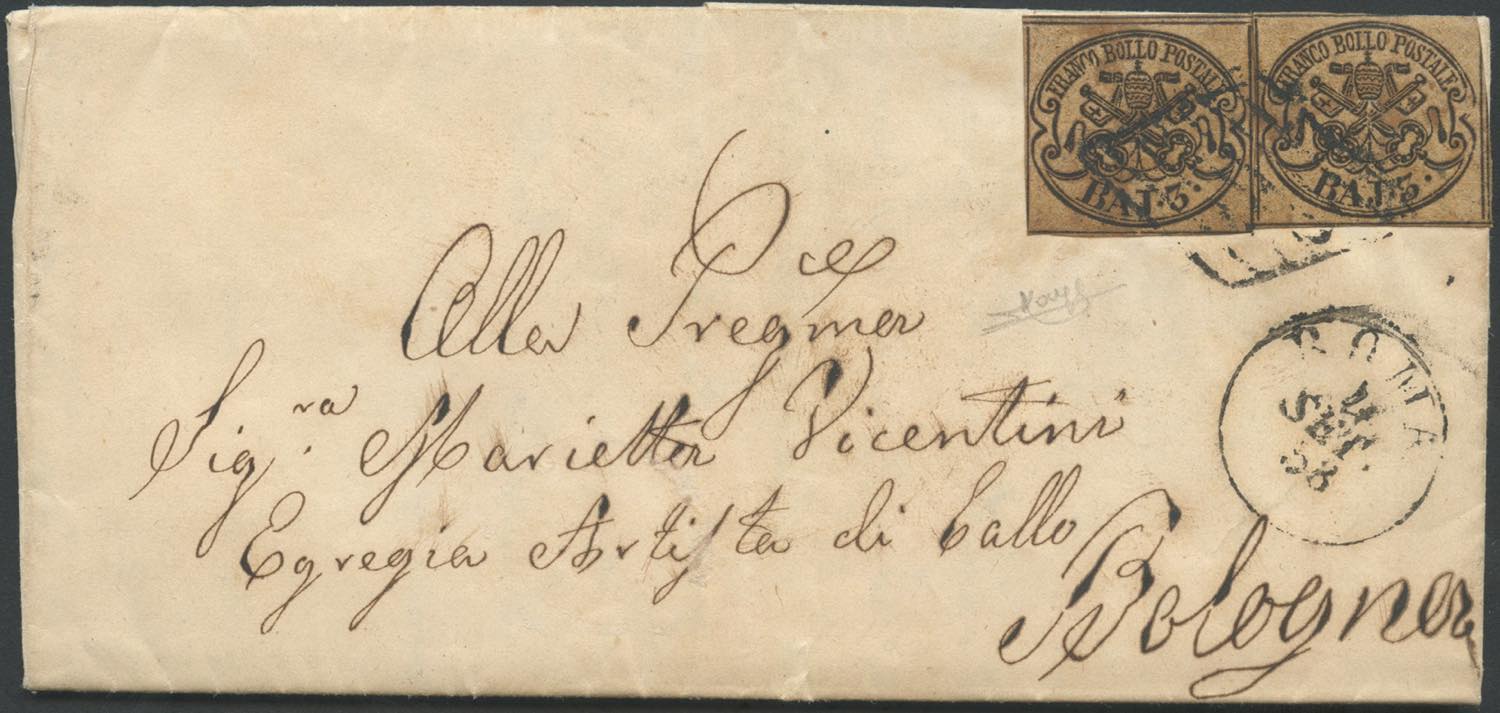 FRANCO BOLLO POSTALE
BAJ. 3.
FRANCO BOLLO POSTALE
BAJ. 3.
Alla Pregma
Sig.ra Marietta Vicentini
Egregia Artista di ballo
Bologna
ROMA
SET.
58